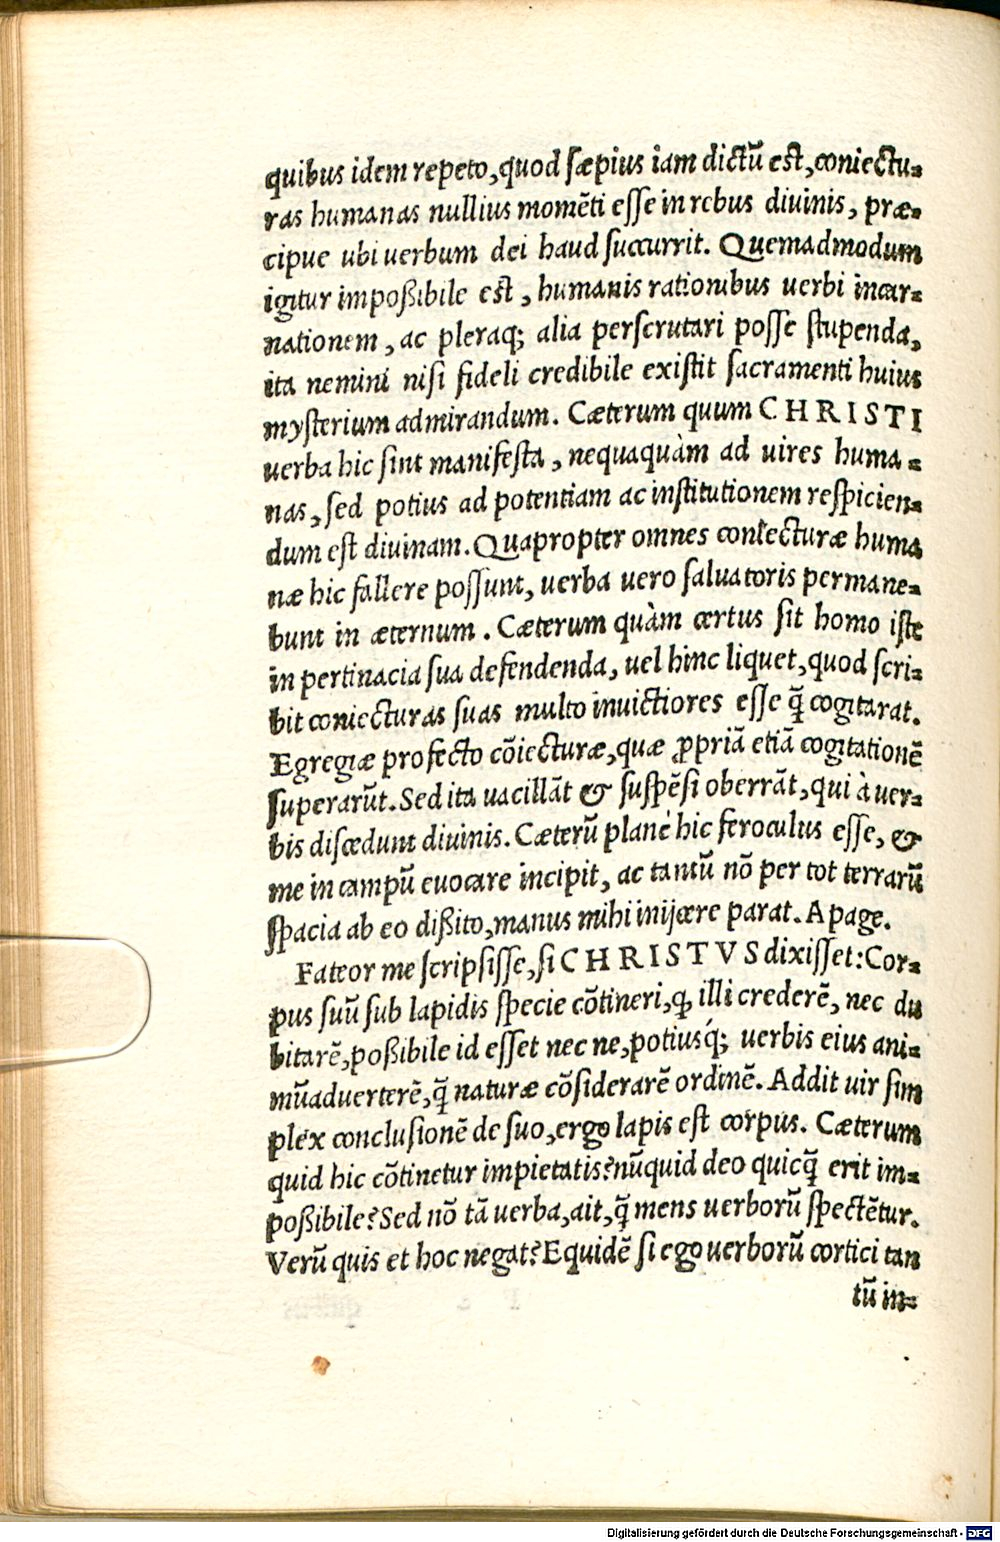 quibus idem repeto, quod sæpius iam dictũ est, coniectu-
ras humanas nullius momẽti esse in rebus diuinis, præ-
cipue ubi uerbum dei haud succurrit. Quemadmodum
igitur impoßibile est, humanis rationibus uerbi incar-
nationem, ac pleraq; alia perscrutari posse stupenda,
ita nemini nisi fideli credibile existit sacramenti huius
mysterium admirandum. Cæterum quum CHRISTI
uerba hic sint manifesta, nequaquàm ad uires huma-
nas, sed potius ad potentiam ac institutionem respicien-
dum est diuinam. Quapropter omnes coniecturæ huma
næ hic fallere possunt, uerba uero saluatoris permane-
bunt in æternum. Cæterum quàm certus sit homo iste
in pertinacia sua defendenda, uel hinc liquet, quod scri-
bit coniecturas suas multo inuictiores esse q̃ cogitarat.
Egregiæ profecto cõiecturæ, quæ ꝓpriã etiã cogitationẽ
superarũt. Sed ita uacillãt & suspẽsi oberrãt, qui à uer-
bis discedunt diuinis. Cæterũ planè hic feroculus esse, &
me in campũ euocare incipit, ac tantũ nõ per tot terrarũ
spacia ab eo dißito, manus mihi inijcere parat. Apage.
Fateor me scripsisse, si CHRISTVS dixisset: Cor-
pus suũ sub lapidis specie cõtineri, ꝙ illi crederẽ, nec du
bitarẽ, poßibile id esset nec ne, potiusq́; uerbis eius ani-
mũaduerterẽ, q̃ naturæ cõsiderarẽ ordinẽ. Addit uir sim
plex conclusionẽ de suo, ergo lapis est corpus. Cæterum
quid hic cõtinetur impietatis? nũquid deo quicq̃ erit im-
poßibile? Sed nõ tã uerba, ait, q̃ mens uerborũ spectẽtur.
Verũ quis et hoc negat? Equidẽ si ego uerborũ cortici tan
tũ in-
Digitalisierung gefördert durch die Deutsche Forschungsgemeinschaft - DFG